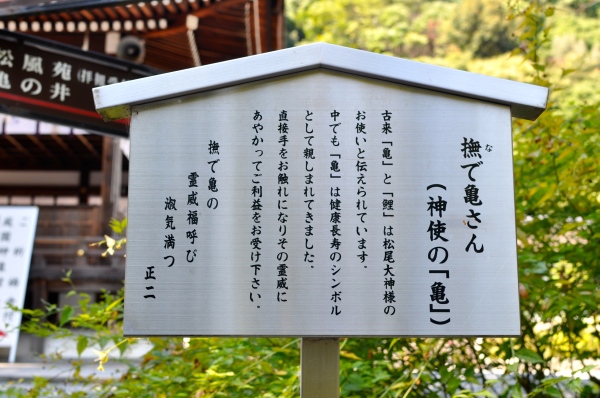 撫で亀さん
な
(神使の「亀」)
古来「亀」と「鯉」は松尾大神様の
お使いと伝えられています.
中でも「亀」は健康長寿のシンボル
として親しまれてきました.
直接手をお触れになりその霊威に
あやかってご利益をお受け下さい.
撫で亀の
霊威福呼び
淑気満つ
正二
松風苑(拝観
亀の井